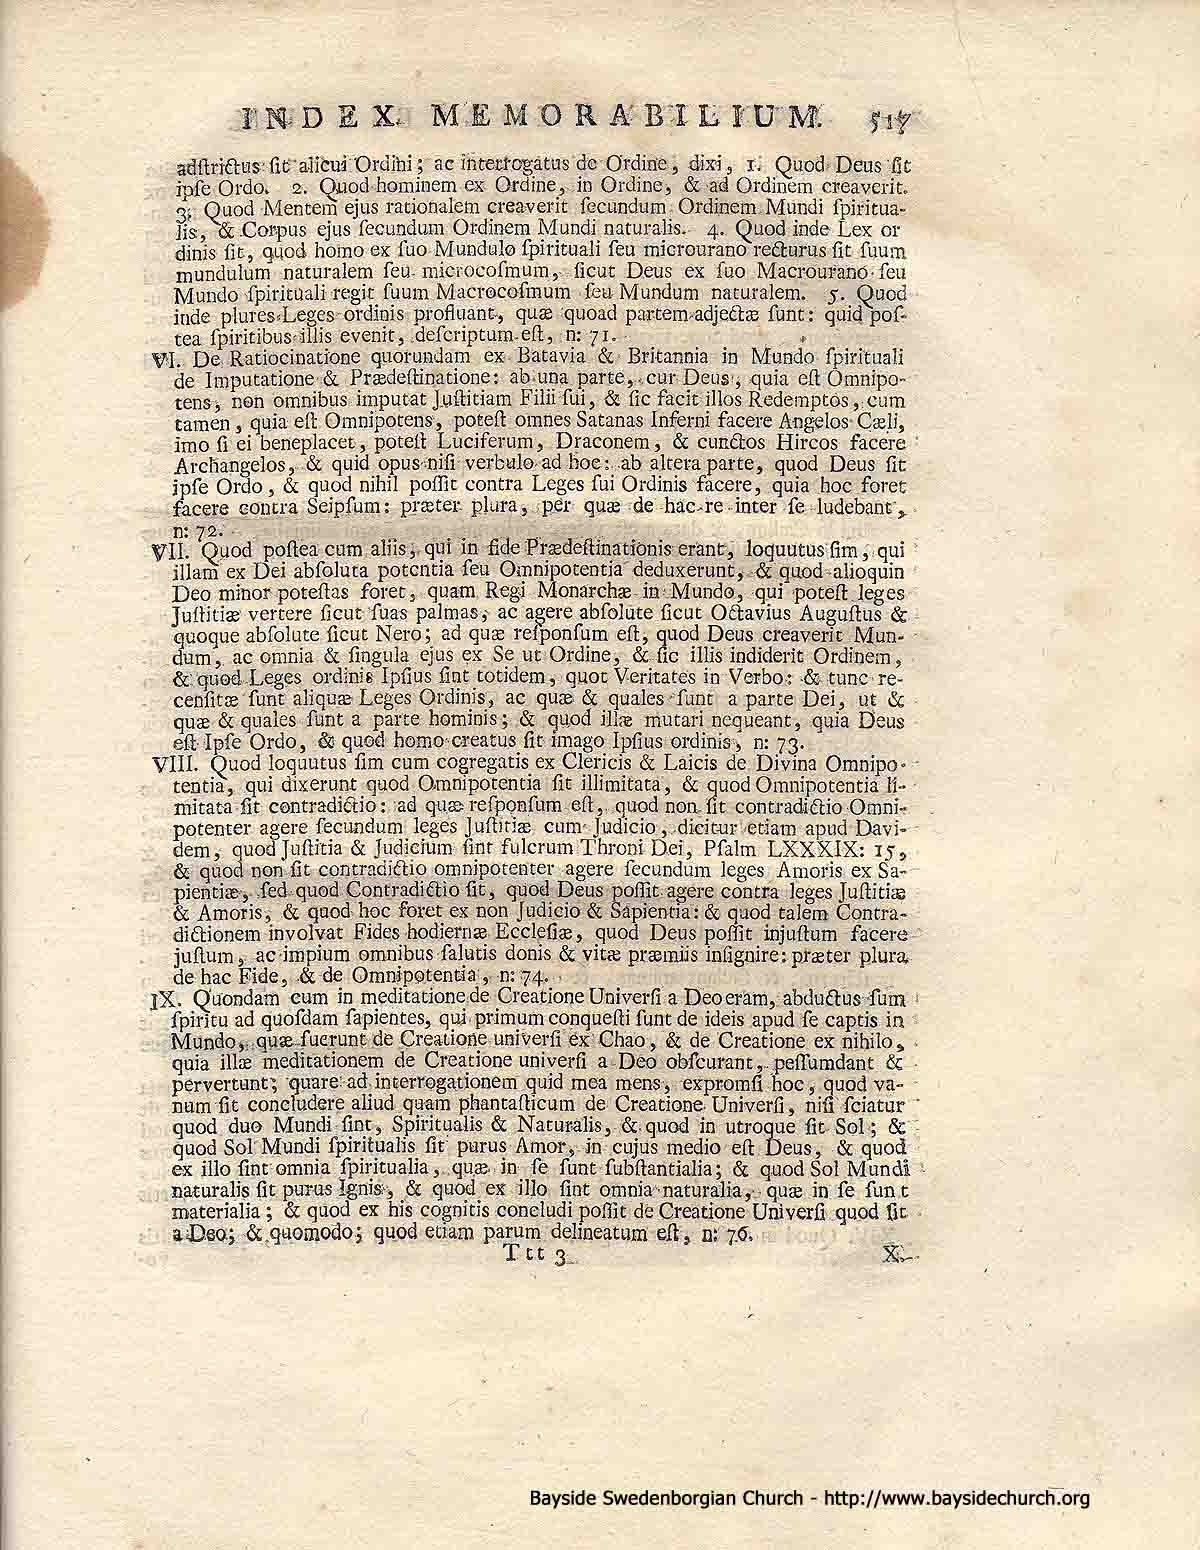 INDEX. MEMORABILIUM. 517
adſtrictus ſit alicui Ordini; ac interrogatus de Ordine, dixi, 1. Quod Deus ſit
ipſe Ordo. 2. Quod hominem ex Ordine, in Ordine, & ad Ordinem creaverit.
3. Quod Mentem ejus rationalem creaverit ſecundum Ordinem Mundi ſpiritua-
lis, & Corpus ejus ſecundum Ordinem Mundi naturalis. 4. Quod inde Lex or
dinis ſit, quod homo ex ſuo Mundulo ſpirituali ſeu microurano recturus ſit ſuum
mundulum naturalem ſeu microcoſmum, ſicut Deus ex ſuo Macrourano ſeu
Mundo ſpirituali regit ſuum Macrocoſmum ſeu Mundum naturalem. 5. Quod
inde plures Leges ordinis profluant, quæ quoad partem adjectæ ſunt: quid poſ-
tea ſpiritibus illis evenit, deſcriptum eſt, n: 71.
VI. De Ratiocinatione quorundam ex Batavia & Britannia in Mundo ſpirituali
de Imputatione & Prædeſtinatione: ab una parte, cur Deus, quia eſt Omnipo-
tens, non omnibus imputat Juſtitiam Filii ſui, & ſic facit illos Redemptos, cum
tamen, quia eſt Omnipotens, poteſt omnes Satanas Inferni facere Angelos Cæli,
imo ſi ei beneplacet, poteſt Luciferum, Draconem, & cunctos Hircos facere
Archangelos, & quid opus niſi verbulo ad hoc: ab altera parte, quod Deus ſit
ipſe Ordo, & quod nihil poſſit contra Leges ſui Ordinis facere, quia hoc foret
facere contra Seipſum: præter plura, per quæ de hac re inter ſe ludebant,
n: 72.
VII. Quod poſtea cum aliis, qui in fide Prædeſtinationis erant, loquutus ſim, qui
illam ex Dei abſoluta potentia ſeu Omnipotentia deduxerunt, & quod alioquin
Deo minor poteſtas foret, quam Regi Monarchæ in Mundo, qui poteſt leges
Juſtitiæ vertere ſicut ſuas palmas, ac agere abſolute ſicut Octavius Auguſtus &
quoque abſolute ſicut Nero; ad quæ reſponſum eſt, quod Deus creaverit Mun-
dum, ac omnia & ſingula ejus ex Se ut Ordine, & ſic illis indiderit Ordinem,
& quod Leges ordinis Ipſius ſint totidem, quot Veritates in Verbo: & tunc re-
cenſitæ ſunt aliquæ Leges Ordinis, ac quæ & quales ſunt a parte Dei, ut &
quæ & quales ſunt a parte hominis; & quod illæ mutari nequeant, quia Deus
eſt Ipſe Ordo, & quod homo creatus ſit imago Ipſius ordinis, n: 73.
VIII. Quod loquutus ſim cum cogregatis ex Clericis & Laicis de Divina Omnipo-
tentia, qui dixerunt quod Omnipotentia ſit illimitata, & quod Omnipotentia li-
mitata ſit contradictio: ad quæ reſponſum eſt, quod non ſit contradictio Omni-
potenter agere ſecundum leges Juſtitiæ cum Judicio, dicitur etiam apud Davi-
dem, quod Juſtitia & Judicium ſint fulcrum Throni Dei, Pſalm LXXXIX: 15,
& quod non ſit contradictio omnipotenter agere ſecundum leges Amoris ex Sa-
pientiæ, ſed quod Contradictio ſit, quod Deus poſſit agere contra leges Juſtitiæ
& Amoris, & quod hoc foret ex non Judicio & Sapientia: & quod talem Contra-
dictionem involvat Fides hodiernæ Eccleſiæ, quod Deus poſſit injuſtum facere
juſtum, ac impium omnibus ſalutis donis & vitæ præmiis inſignire: præter plura
de hac Fide, & de Omnipotentia, n: 74.
IX. Quondam cum in meditatione de Creatione Univerſi a Deo eram, abductus ſum
ſpiritu ad quoſdam ſapientes, qui primum conqueſti ſunt de ideis apud ſe captis in
Mundo, quæ fuerunt de Creatione univerſi ex Chao, & de Creatione ex nihilo,
quia illæ meditationem de Creatione univerſi a Deo obſcurant, peſſumdant &
pervertunt; quare ad interrogationem quid mea mens, expromſi hoc, quod va-
num ſit concludere aliud quam phantaſticum de Creatione Univerſi, niſi ſciatur
quod duo Mundi ſint, Spiritualis & Naturalis, & quod in utroque ſit Sol; &
quod Sol Mundi ſpiritualis ſit purus Amor, in cujus medio eſt Deus, & quod
ex illo ſint omnia ſpiritualia, quæ in ſe ſunt ſubſtantialia; & quod Sol Mundi
naturalis ſit purus Ignis, & quod ex illo ſint omnia naturalia, quæ in ſe ſunt
materialia; & quod ex his cognitis concludi poſſit de Creatione Univerſi quod ſit
a Deo; & quomodo; quod etiam parum delineatum eſt, n: 76.
Ttt 3 X.
Bayside Swedenborgian Church - http://www.baysidechurch.org